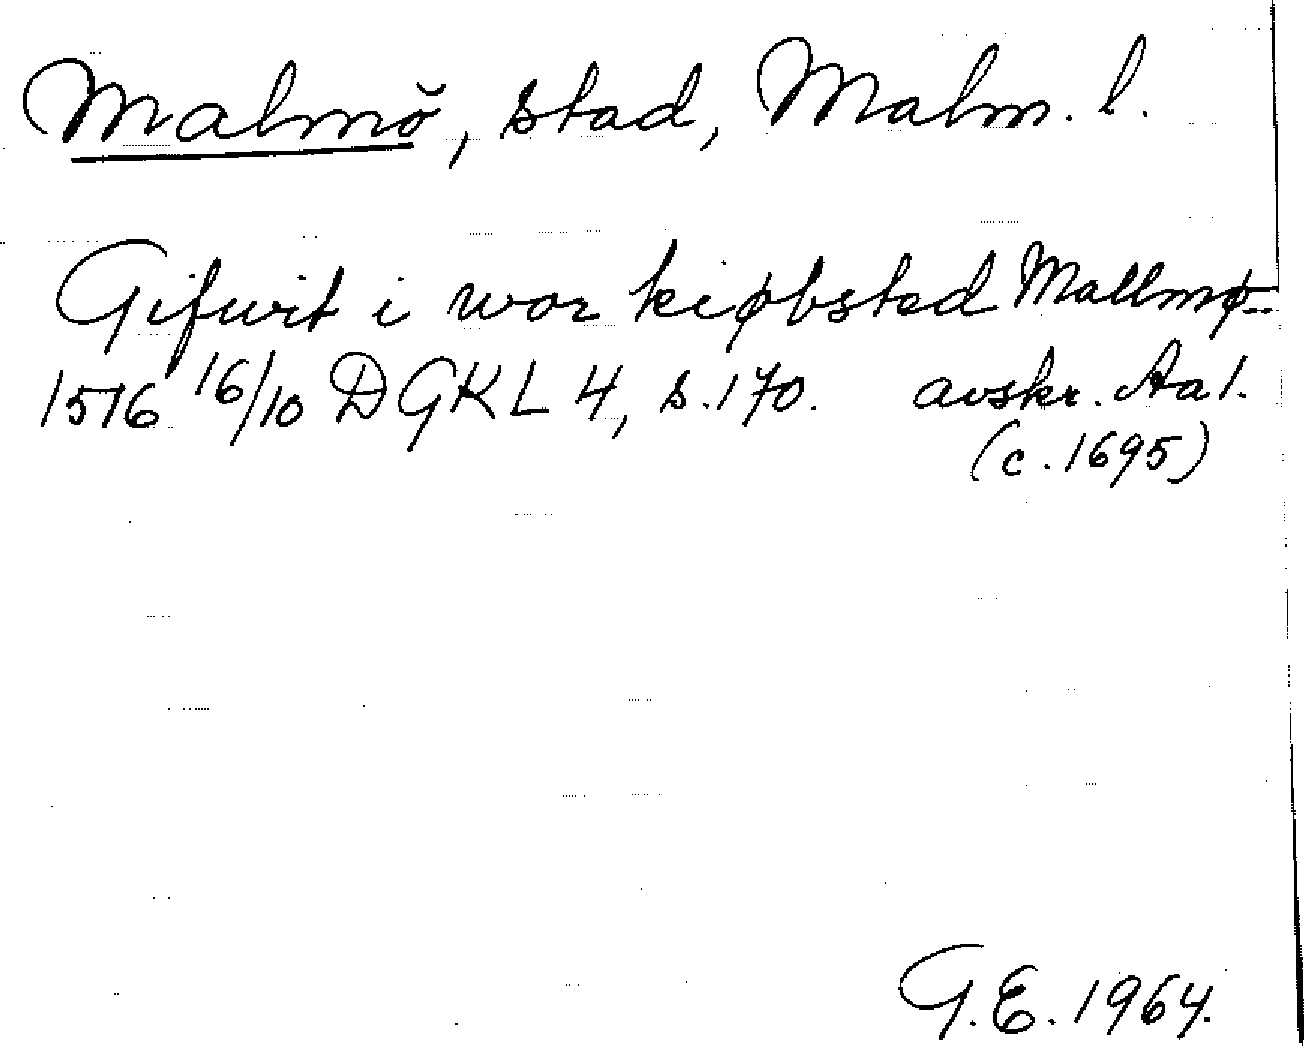 Malmö, stad, Malm. l.
Gifuit i wor kiøbsted Mallmø
1576 16/10 DGKL 4, s. 170. avskr. Aa 1.
(c. 1695)
G.E. 1964.